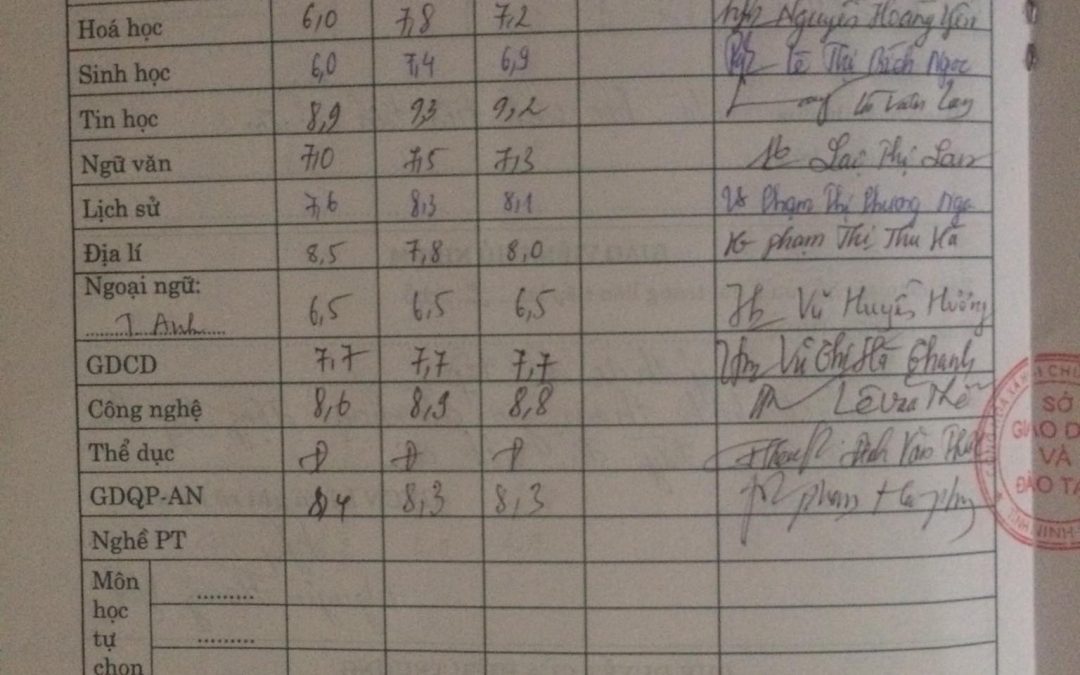 Hoá học 6,0 7,8 7,2 Nguyễn Hoàng Yến
Sinh học 6,0 7,4 6,9 Lê Thị Bích Ngọc
Tin học 8,9 9,3 9,2
Ngữ văn 7,0 7,5 7,3 Lại Thị Lan
Lịch sử 7,6 8,3 8,1 Phạm Thị Phương Nga
Địa lí 8,5 7,8 8,0 phạm Thị Thu Hà
Ngoại ngữ:
T. Anh 6,5 6,5 6,5 Vũ Huyền Hương
GDCD 7,7 7,7 7,7 Vũ Thị Hà Thanh
Công nghệ 8,6 8,9 8,8
Thể dục Đ Đ Đ
GDQP-AN 8,4 8,3 8,3
Nghề PT
Môn
học
tự
chọn
SỞ
GIÁO D
VÀ
ĐÀO TẠ